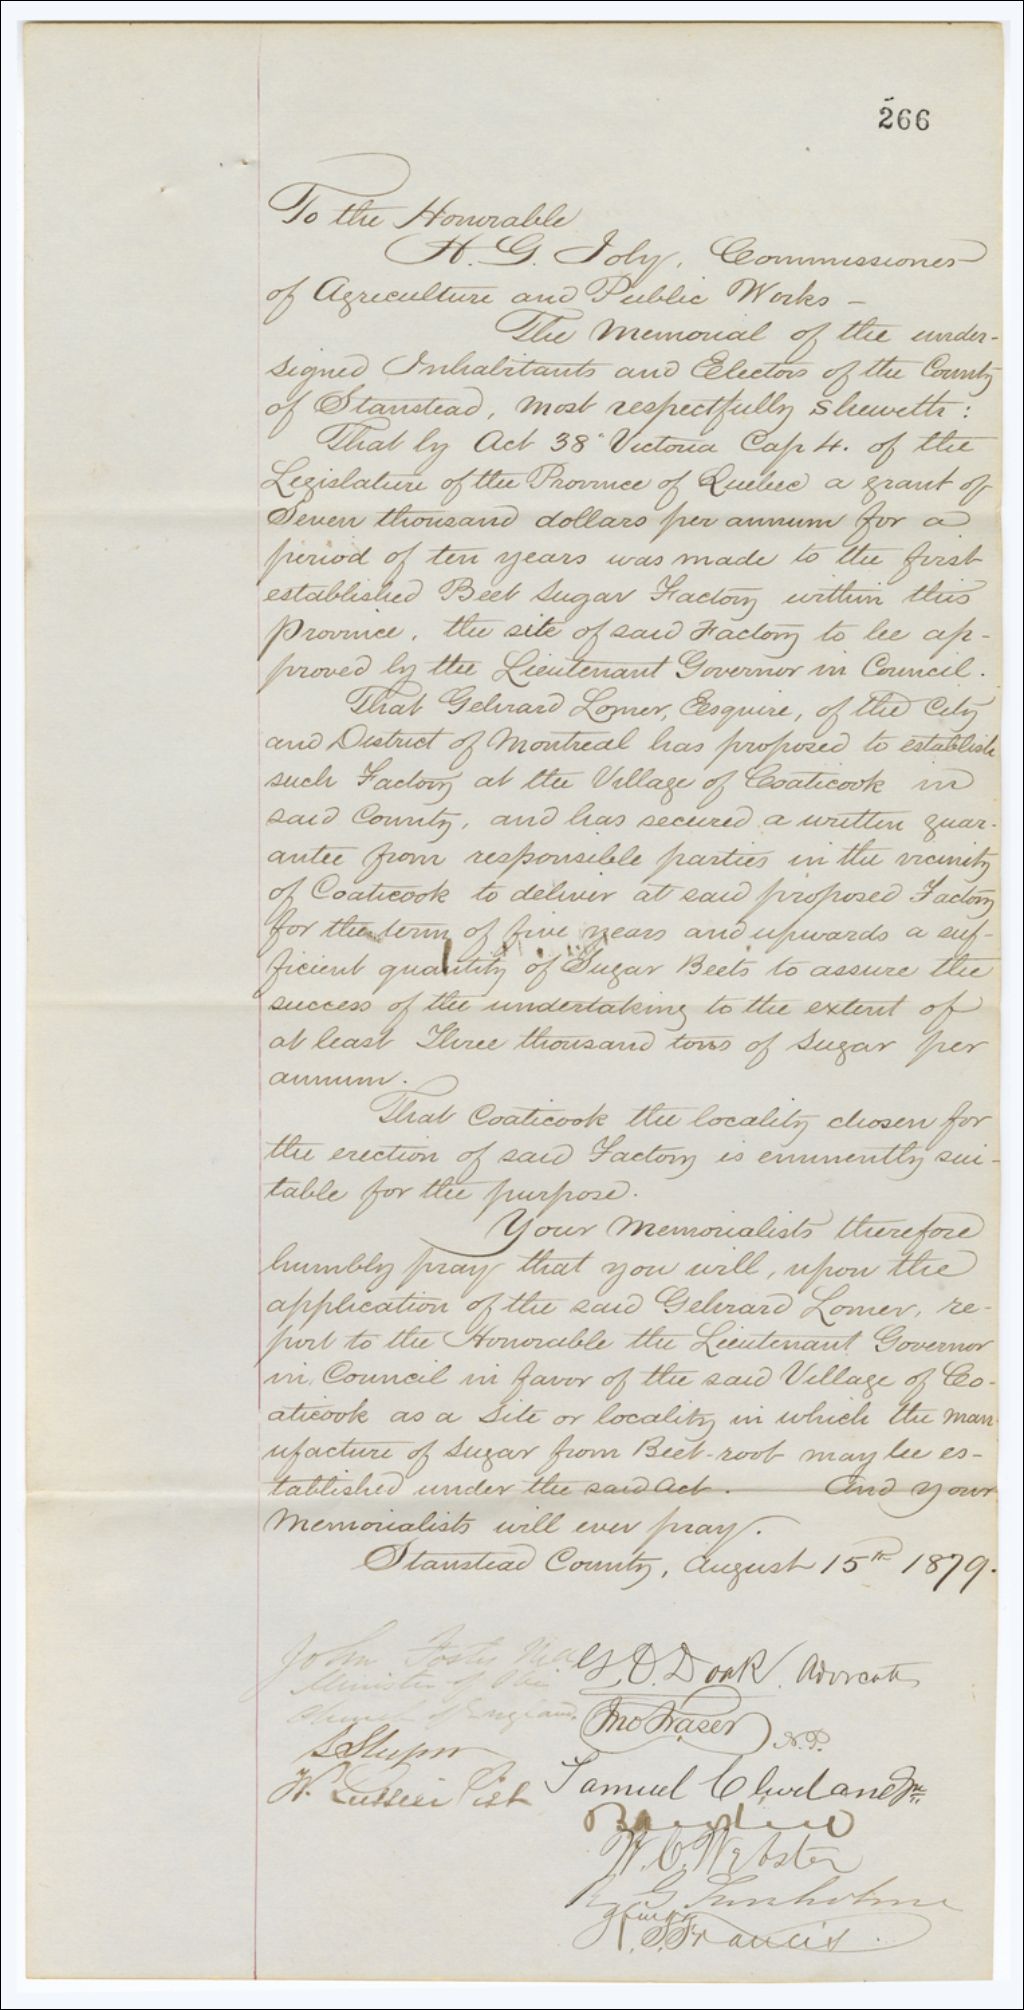 266
To the Honorable
H. G. Joly, Commissioner
of Agriculture and Public Works –
The Memorial of the under-
signed Inhabitants and Electors of the County
of Stanstead, most respectfully sheweth:
That by Act 38 Victoria Cap 4. of the
Legislature of the Province of Quebec a grant of
Seven thousand dollars per annum for a
period of ten years was made to the first
established Beet Sugar Factory within this
Province, the site of said Factory to be ap-
proved by the Lieutenant Governor in Council.
That Gehrard Lomer, Esquire, of the City
and District of Montreal has proposed to establish
such Factory at the Village of Coaticook in
said County, and has secured a written guar-
antee from responsible parties in the vicinity
of Coaticook to deliver at said proposed Factory
for the term of five years and upwards a suf-
ficient quantity of Sugar Beets to assure the
success of the undertaking to the extent of
at least Three thousand tons of Sugar per
annum.
That Coaticook the locality chosen for
the erection of said Factory is eminently sui-
table for the purpose.
Your Memorialists therefore
humbly pray that you will, upon the
application of the said Gehrard Lomer, re-
port to the Honorable the Lieutenant Governor
in Council in favor of the said Village of Co-
aticook as a site or locality in which the man
ufacture of Sugar from Beet-root may be es-
tablished under the said Act. And your
Memorialists will ever pray.
Stanstead County, August 15th 1879.
John Foster M.A
Minister of the
Church of England.
D. Doak. Advocate
Jno Fraser N.P.
W.
Samuel Cleveland Jr
W. C. Webster
G
Francis